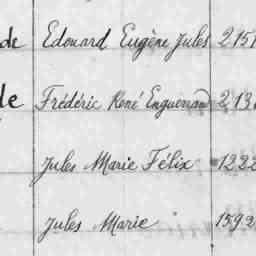 de Edouard Eugène Jules 2151
de Frédéric René Enguerrand 213
Jules Marie Félix 1222
Jules Marie 1592